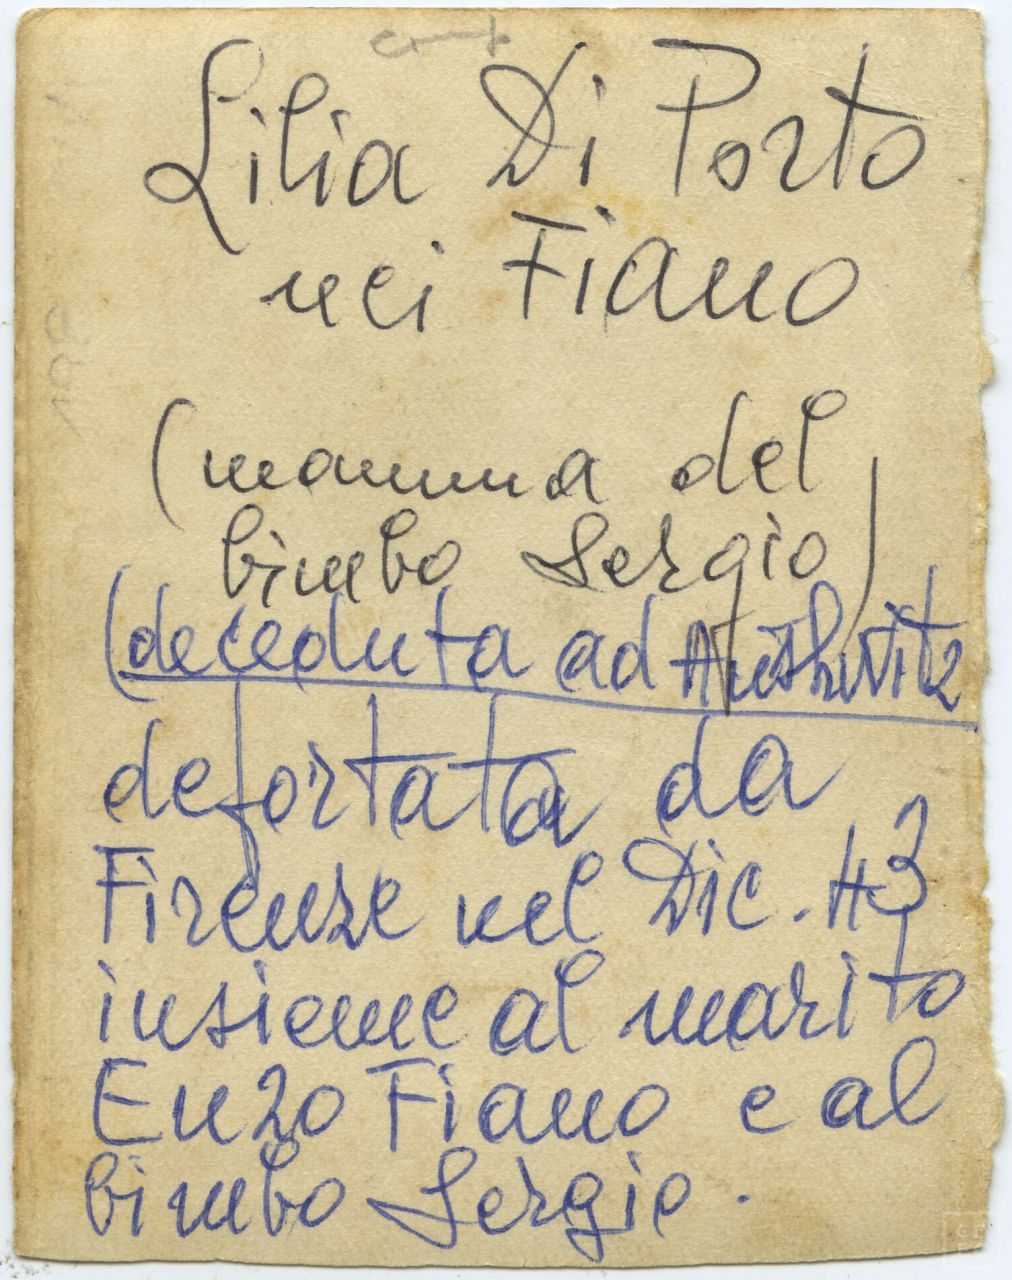 Lilia Di Porto
nei Fiano
(mamma del
bimbo Sergio)
(deceduta ad Aushwitz
deportata da
Firenze nel Dic. 43
insieme al marito
Enzo Fiano e al
bimbo Sergio.